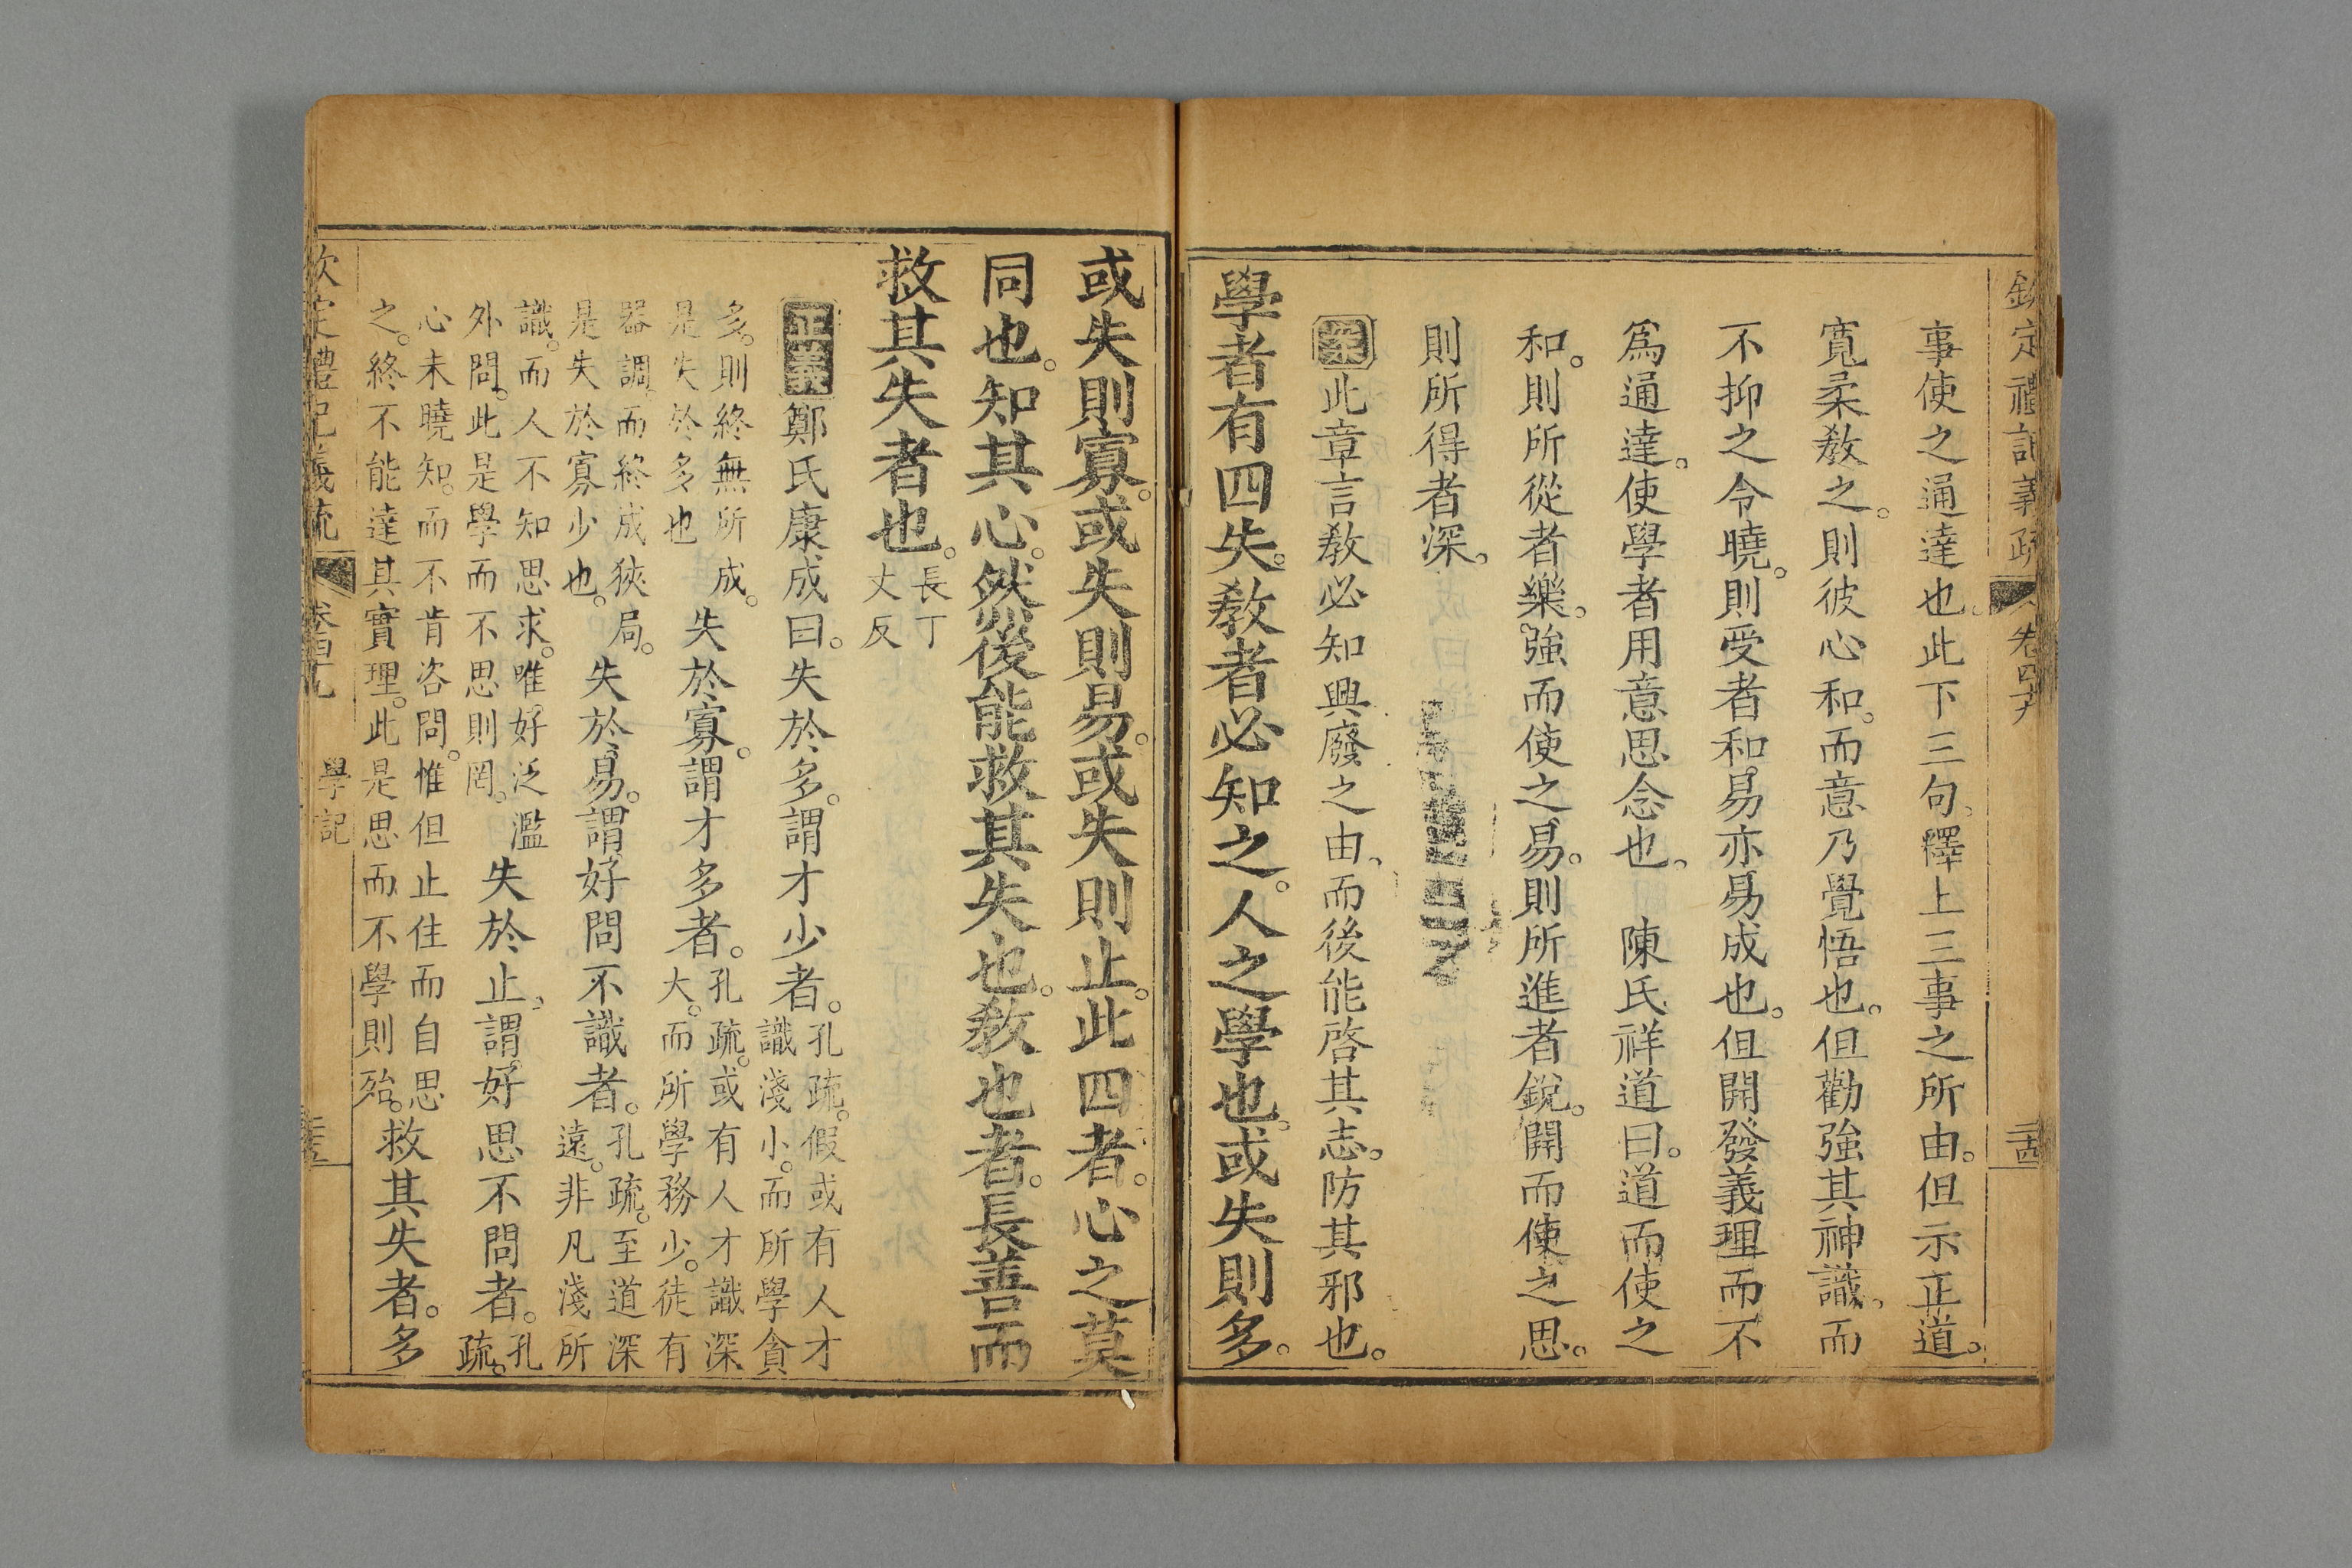 欽定禮記義疏 卷四九 二十四
事使之通達也。此下三句。釋上三事之所由。但示正道。
寬柔教之。則彼心和。而意乃覺悟也。但勸強其神識。而
不抑之令曉。則受者和易亦易成也。但開發義理而不
為通達。使學者用意思念也。 陳氏祥道曰。道而使之
和。則所從者樂。強而使之易。則所進者銳。開而使之思。
則所得者深。
案此章言教必知興廢之由、而後能啓其志。防其邪也。
學者有四失。教者必知之。人之學也。或失則多。
或失則寡。或失則易。或失則止。此四者。心之莫
同也。知其心。然後能救其失也。教也者。長善而
救其失者也。長丁
丈反
正義鄭氏康成曰。失於多。謂才少者。孔疏。假或有人才
識淺小。而所學貪
多。則終無所成。
是失於多也
失於寡。謂才多者。孔疏。或有人才識深
大。而所學務少。徒有
器調。而終成狹局。
是失於寡少也。
失於易。謂好問不識者。孔疏。至道深
遠。非凡淺所
識。而人不知思求。唯好泛濫
外問。此是學而不思則罔。
失於止、謂好思不問者。孔
疏。
心未曉知。而不肯咨問。惟但止住而自思
之。終不能達其實理。此是思而不學則殆。
救其失者。多
欽定禮記義疏 卷四九 學記 二十五